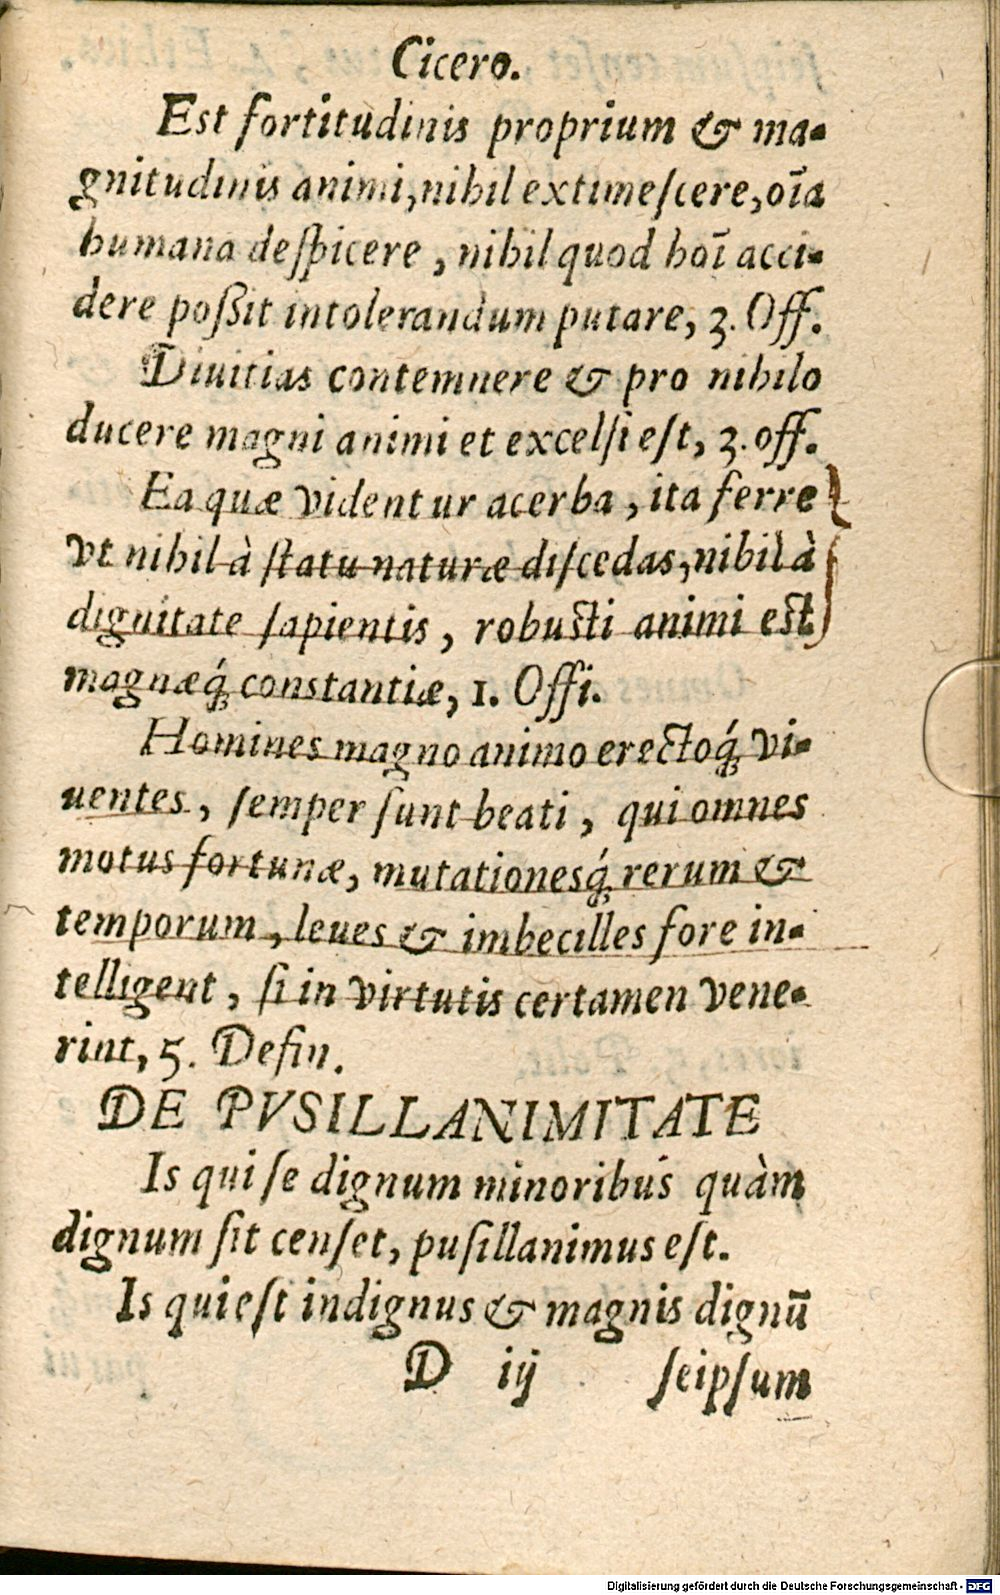 Cicero.
Est fortitudinis proprium & ma-
gnitudinis animi, nihil extimeſcere, oīa
humana deſpicere, nihil quod hoī acci-
dere poßit intolerandum putare, 3. Off.
Diuitias contemnere & pro nihilo
ducere magni animi et excelſi eſt, 3. off.
Ea quæ videntur acerba, ita ferre
vt nihil à ſtatu naturæ diſcedas, nihil à
dignitate ſapientis, robuſti animi eſt
magnæq́; constantiæ, 1. Offi.
Homines magno animo erectoq́; vi-
uentes, ſemper ſunt beati, qui omnes
motus fortunæ, mutationesq́; rerum &
temporum, leues & imbecilles fore in-
telligent, ſi in virtutis certamen vene-
rint, 5. Defin.
DE PVSILLANIMITATE
Is qui ſe dignum minoribus quàm
dignum ſit cenſet, puſillanimus eſt.
Is qui eſt indignus & magnis dignū
D iij ſeipſum
Digitalisierung gefördert durch die Deutsche Forschungsgemeinschaft - DFG